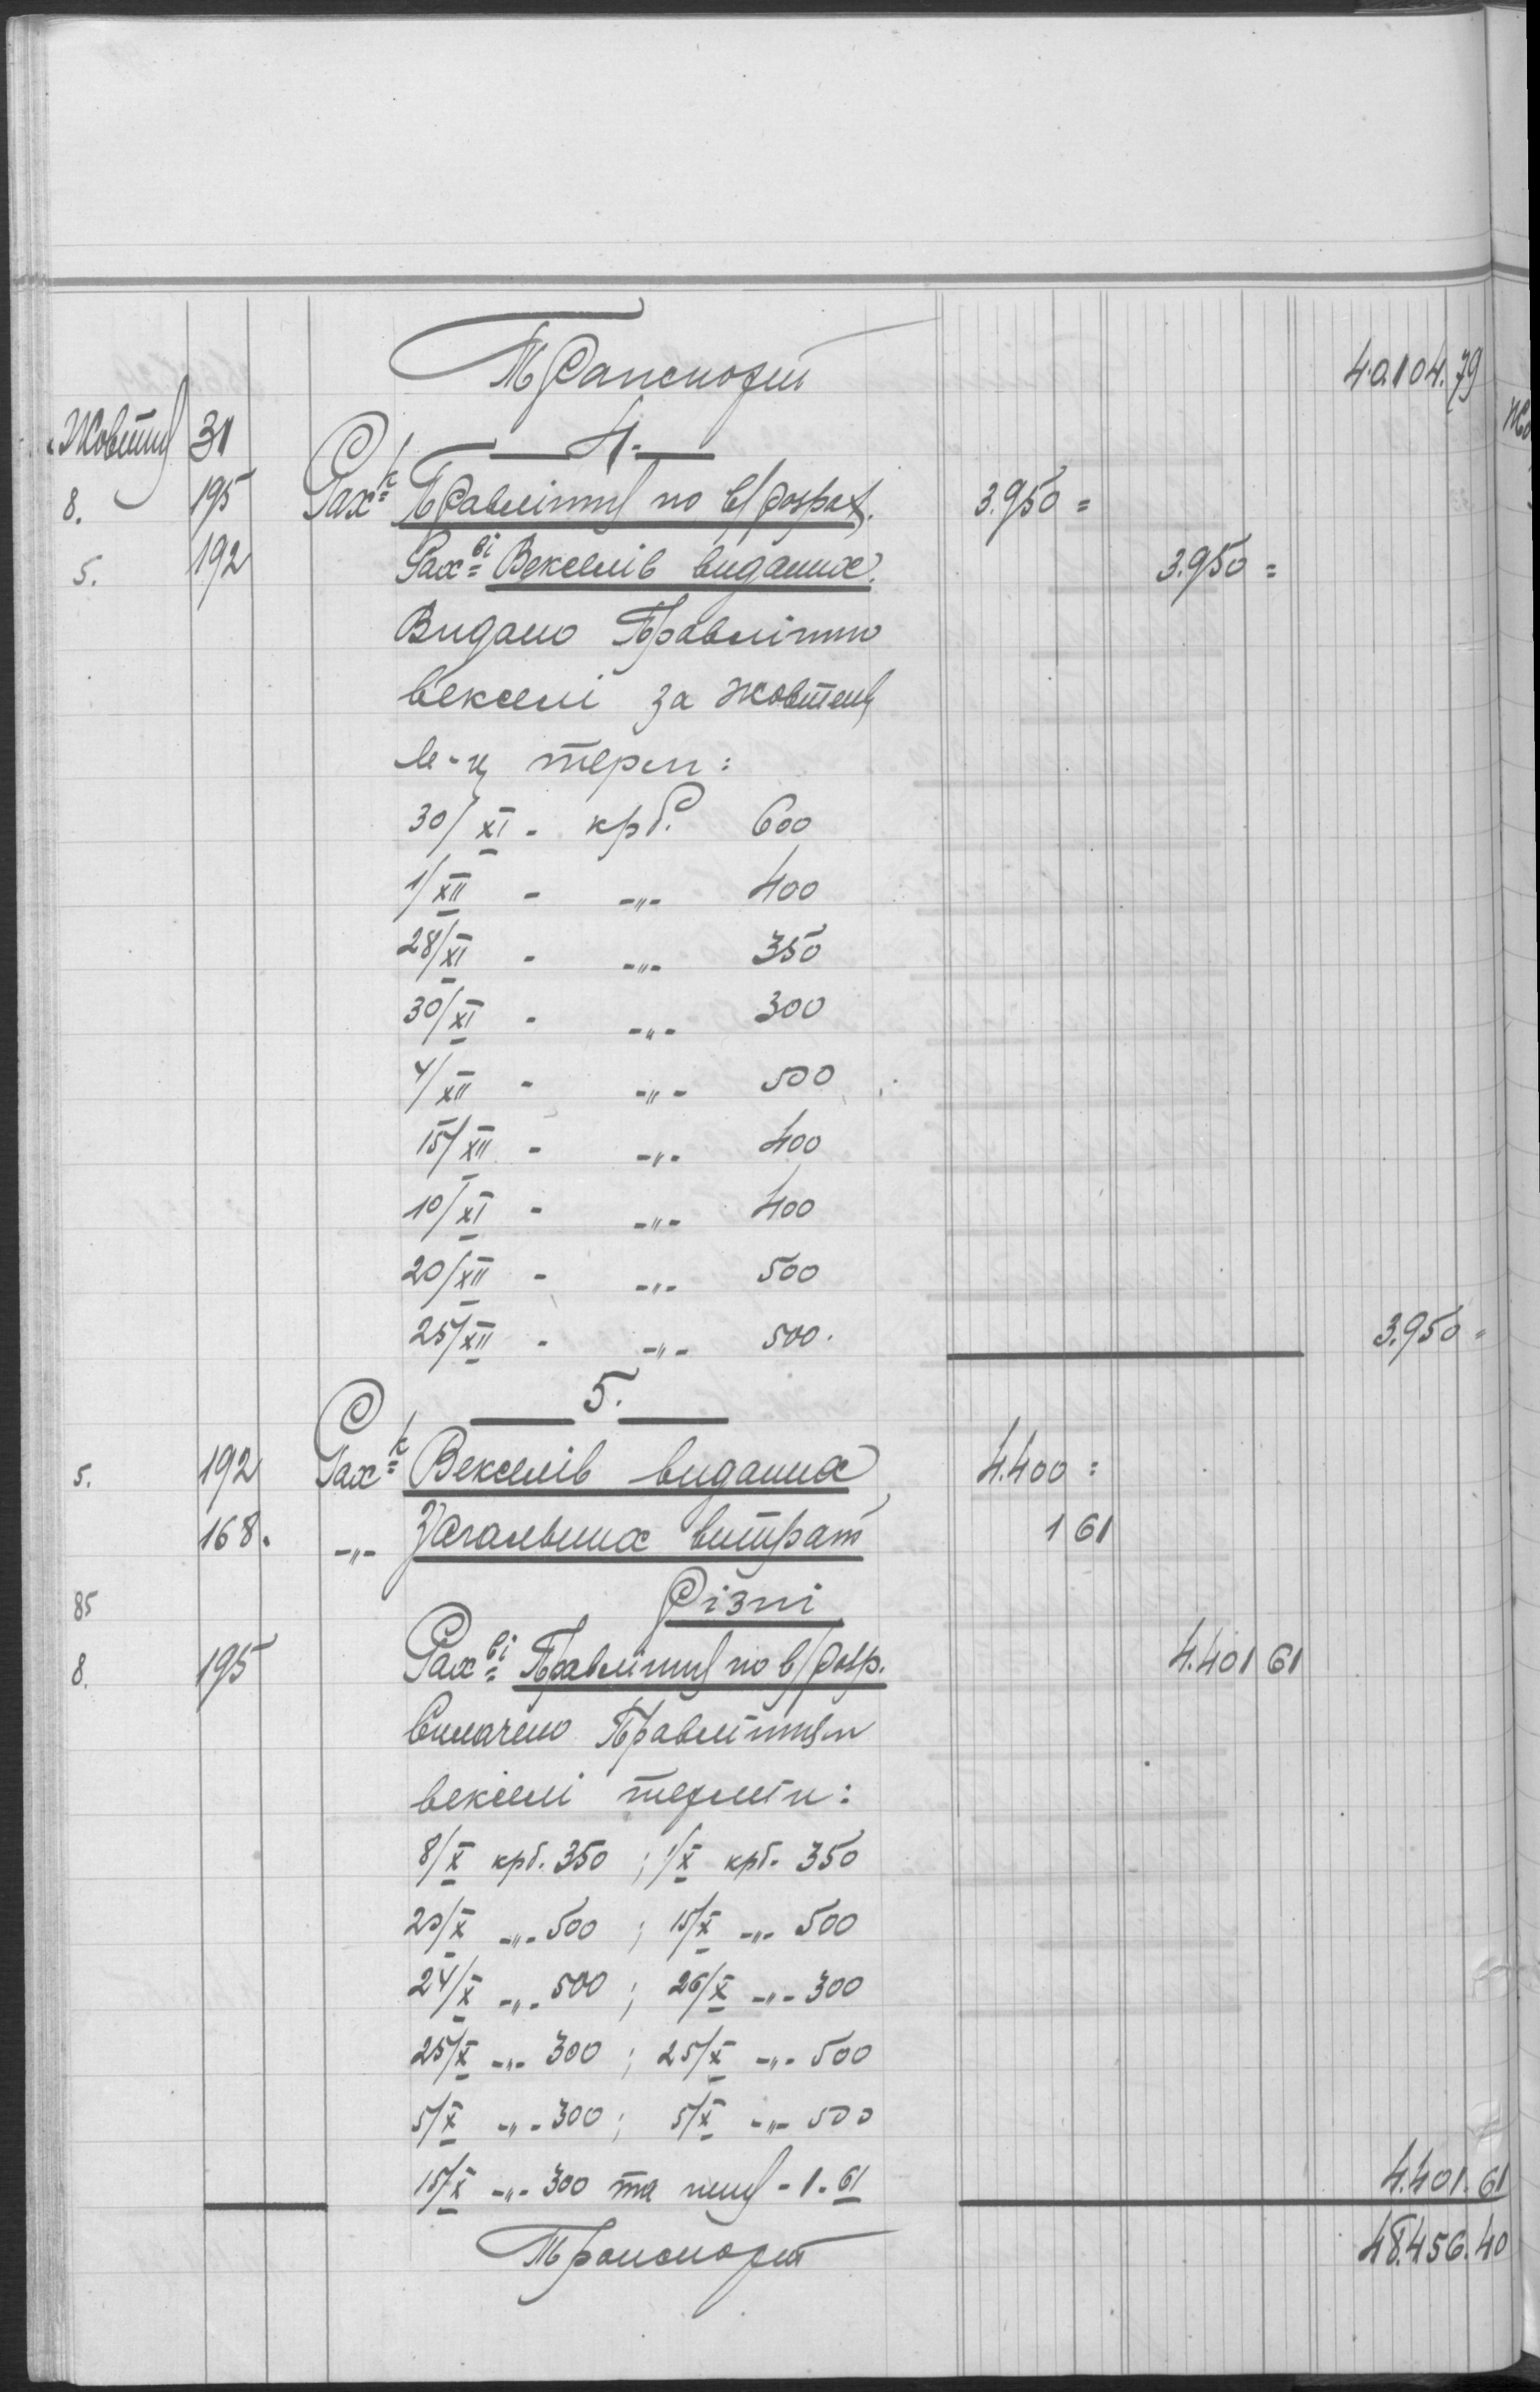 Транспорт 40.104.79
Жовтня 31 — 4. —
8. 195 Рах-к Правлінню по в/розрах. 3.950 =
5. 192 Рах-ві Векселів виданих. 3.950 =
Видано Правлінню
векселі за жовтень
м-ц терм:
30/XI - крб. 600
1/XII - -"- 400
28/XI - -"- 350
30/XI - -"- 300
4/XII - -"- 500
15/XII - -"- 400
10/XI - -"- 400
20/XII - -"- 500
25/XII - -"- 500. 3.950 =
— 5. —
5. 192 Рах-к Векселів виданих 4.400 =
168. -"- Загальних витрат 1 61
85 Різні
8. 195 Рах-ві Правління по в/розр. 4.401 61
Виплачено Правлінням
векселі термін:
8/X крб. 350 ; 1/X крб. 350
20/X -"- 500 ; 15/X -"- 500
24/X -"- 500 ; 26/X -"- 300
25/X -"- 300 ; 25/X -"- 500
5/X -"- 300 ; 5/X -"- 500
15/X -"- 300 та - 1.61 4.401.61
Транспорт 48.456.40